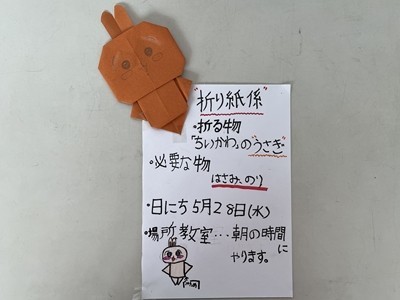 "折り紙係"
・折る物
「ちいかわ」の"うさぎ"
・必要な物
はさみ、のり
・日にち 5月28日(水)
・場所 教室…朝の時間に
やります。